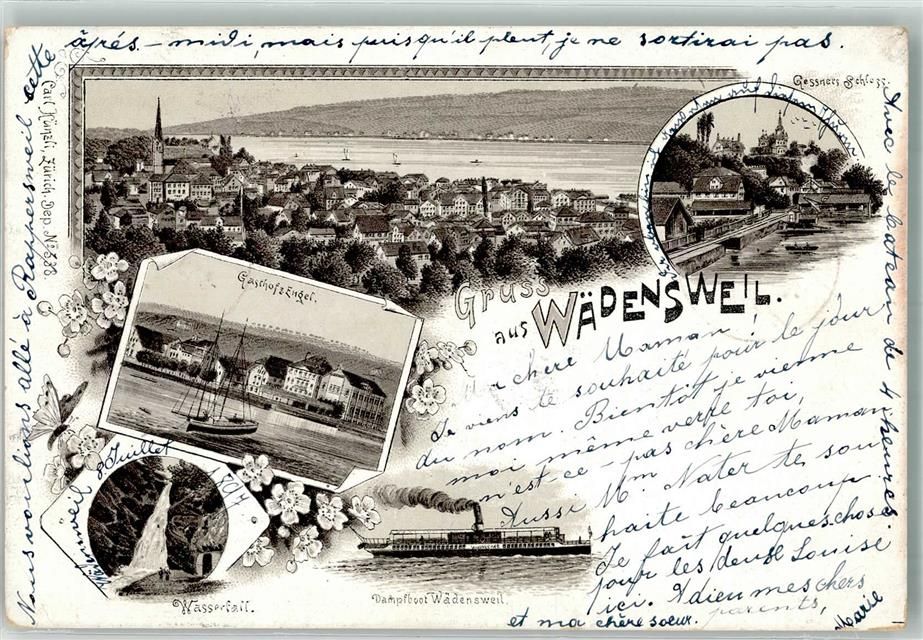 après-midi, mais puisqu'il pleut, je ne sortirai pas.
Gessners Schloss.
Carl Künzli, Zürich, Dep. No 538
Gruss
aus WÄDENSWEIL.
Gasthof z Engel.
Wasserfall.
Dampfboot Wädensweil.
Wädensweil 8 Juillet
Ma chère Maman!
Je viens te souhaité pour le jour
du nom. Bientôt je vienne
moi même verse toi,
n'est-ce-pas chère Maman
Aussi Mm. Nater te sou
haite beaucoup.
Je fait quelqueschose
pour les deux Louise
ici. Adieu mes chers
parents,
et ma chère soeur.
Marie
Nous voulions allé à Rappersweil cette
Avec le bateau de 4 heures